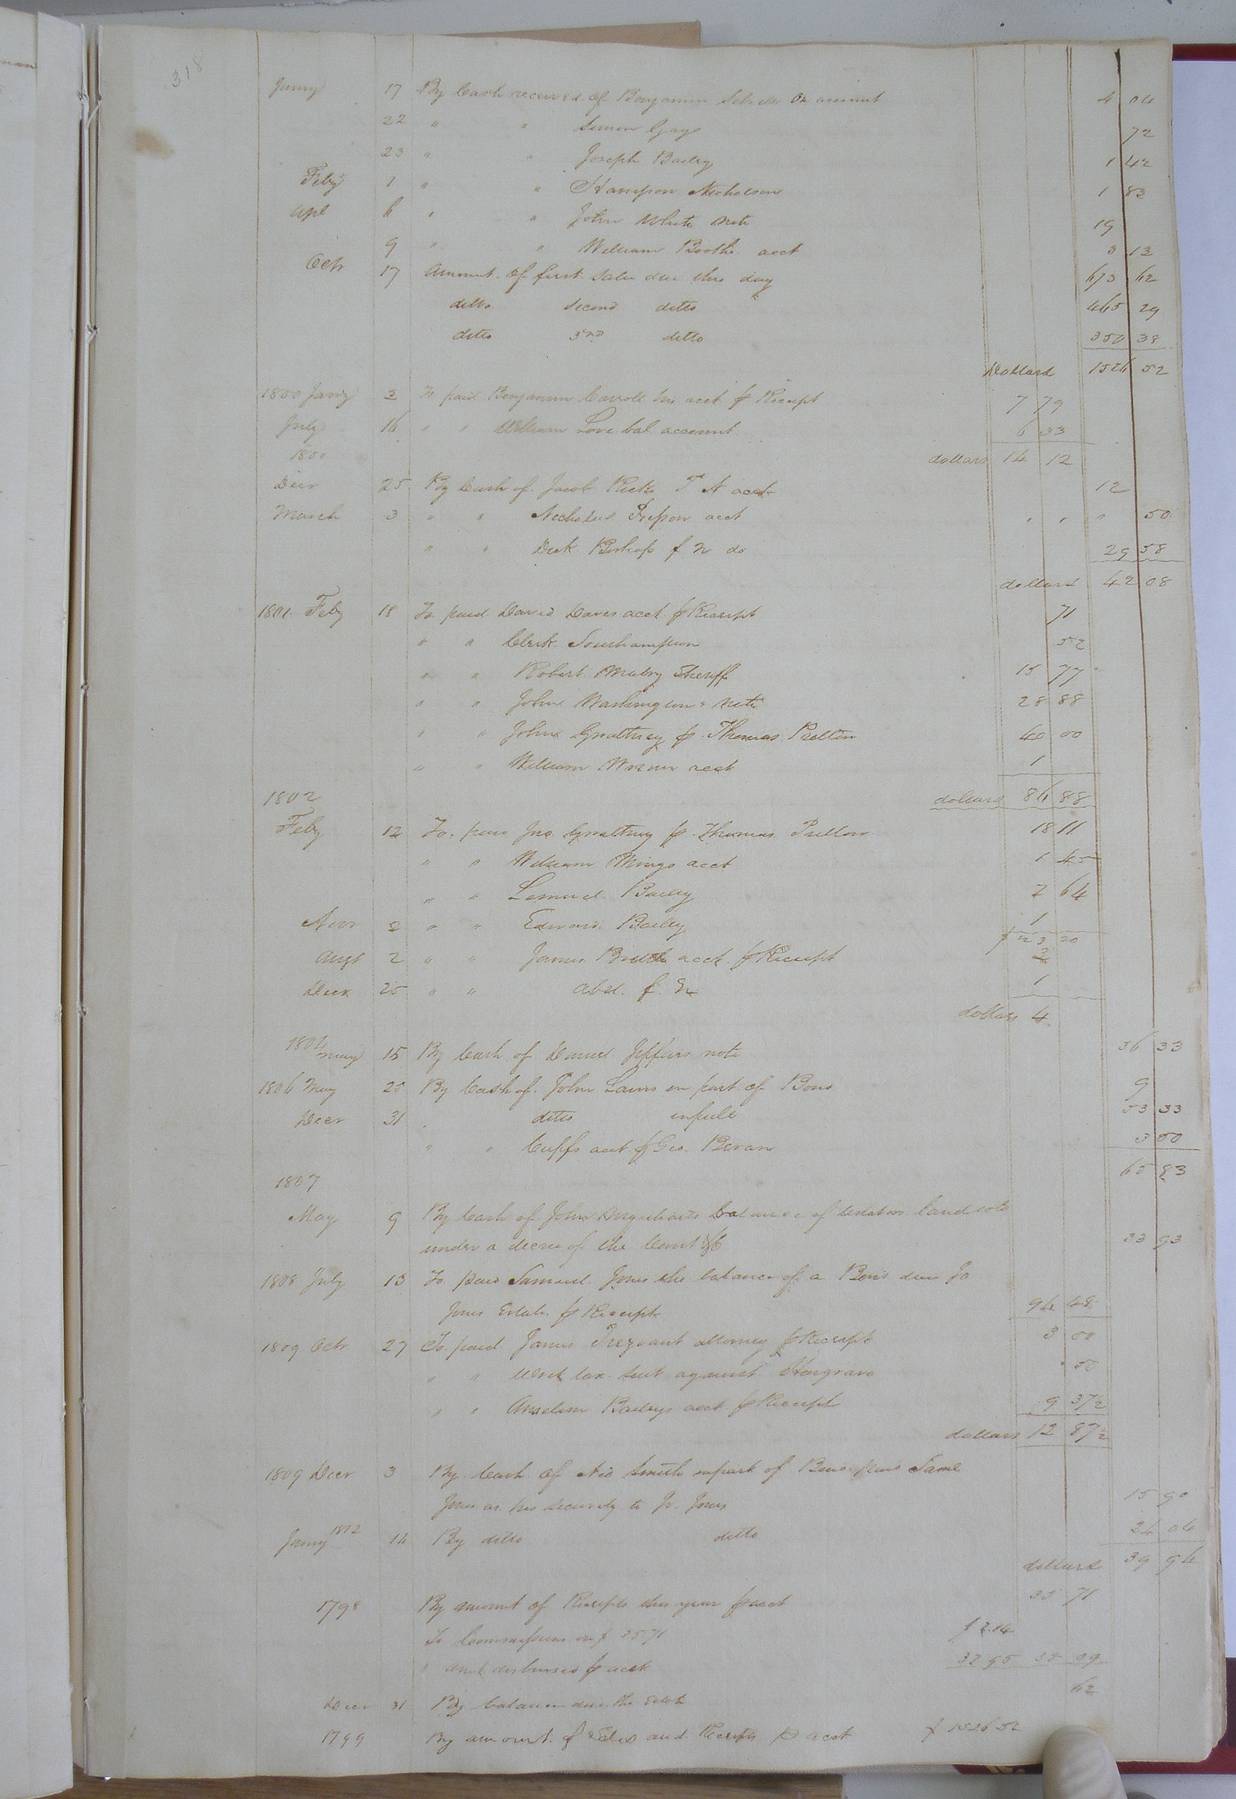 318
Jany 17 By Cash received of Benjamin on account 4 04
22 " " Simon Gray 72
23 " " Joseph Bailey 1 42
Feby 1 " " Hampson Nicholson 1 83
Apl 6 " " John White note 19
9 " " William Booths acct 3 13
Octr 17 Amount of first sale due this day 673 62
ditto second ditto 465 29
ditto 3rd ditto 350 38
Dollars 1526 52
1800 Jany 3 To paid Benjamin Carroll his acct p Receipt 7 79
July 16 " " William Love bal account 6 33
1800 dollars 14 12
Decr 25 By Cash of Jacob Ricks acct 12
March 3 " " Nicholas acct " " " 50
" " Bishop do 29 58
dollars 42 08
1801 Feby 18 To paid David Davis acct p Receipt 71
" " Clerk Southampton 52
" " Robert Mabry Sheriff 15 77
" " John Washingtons note 28 88
" " John Gwathney p Thomas Pretlow 40 00
" " William Wrenn acct 1
1802 dollars 86 88
Feby 12 To paid Jno Gwathney p Thomas Pretlow 18 11
" " William acct 1 45
" " Lemuel Bailey 2 64
2 " " Edward Bailey 1
23 20
Augt 2 " " James acct p Receipt 3
Decr 25 " " 1
dollars 4
1804 15 By Cash of Daniel Jeffries note 36 33
1806 May 25 By Cash of John in part of Bond 9
Decr 31 ditto in full 53 33
" " acct p Geo. Bevan 3 50
65 83
1807
May 9 By Cash of John Urquharts balance of testators land sold
under a decree of the Court 33 93
1808 July 13 To paid Samuel Jones the balance of a Bond due Jo
Jones Estate p Receipt 94 48
1809 Octr 27 To paid James Trezvant attorney p Receipt 3 00
" " tax suit against Hargrave 50
" " Anselm Baileys acct p Receipt 9 37½
dollars 12 87½
1809 Decr 3 By Cash of Smith in part of Bond paid Saml
Jones as his security to Jo. Jones 15 90
Jany 1812 14 By ditto ditto 24 04
dollars 39 94
1798 By amount of Receipts this year p acct 35 71
To Commissions on $ 35 71 $ 2.14
" amt disbursed p acct 32 95 35 09
Decr 31 By balance due the Estate 62
1799 By amount of Sales and Receipts p acct $ 1526 52